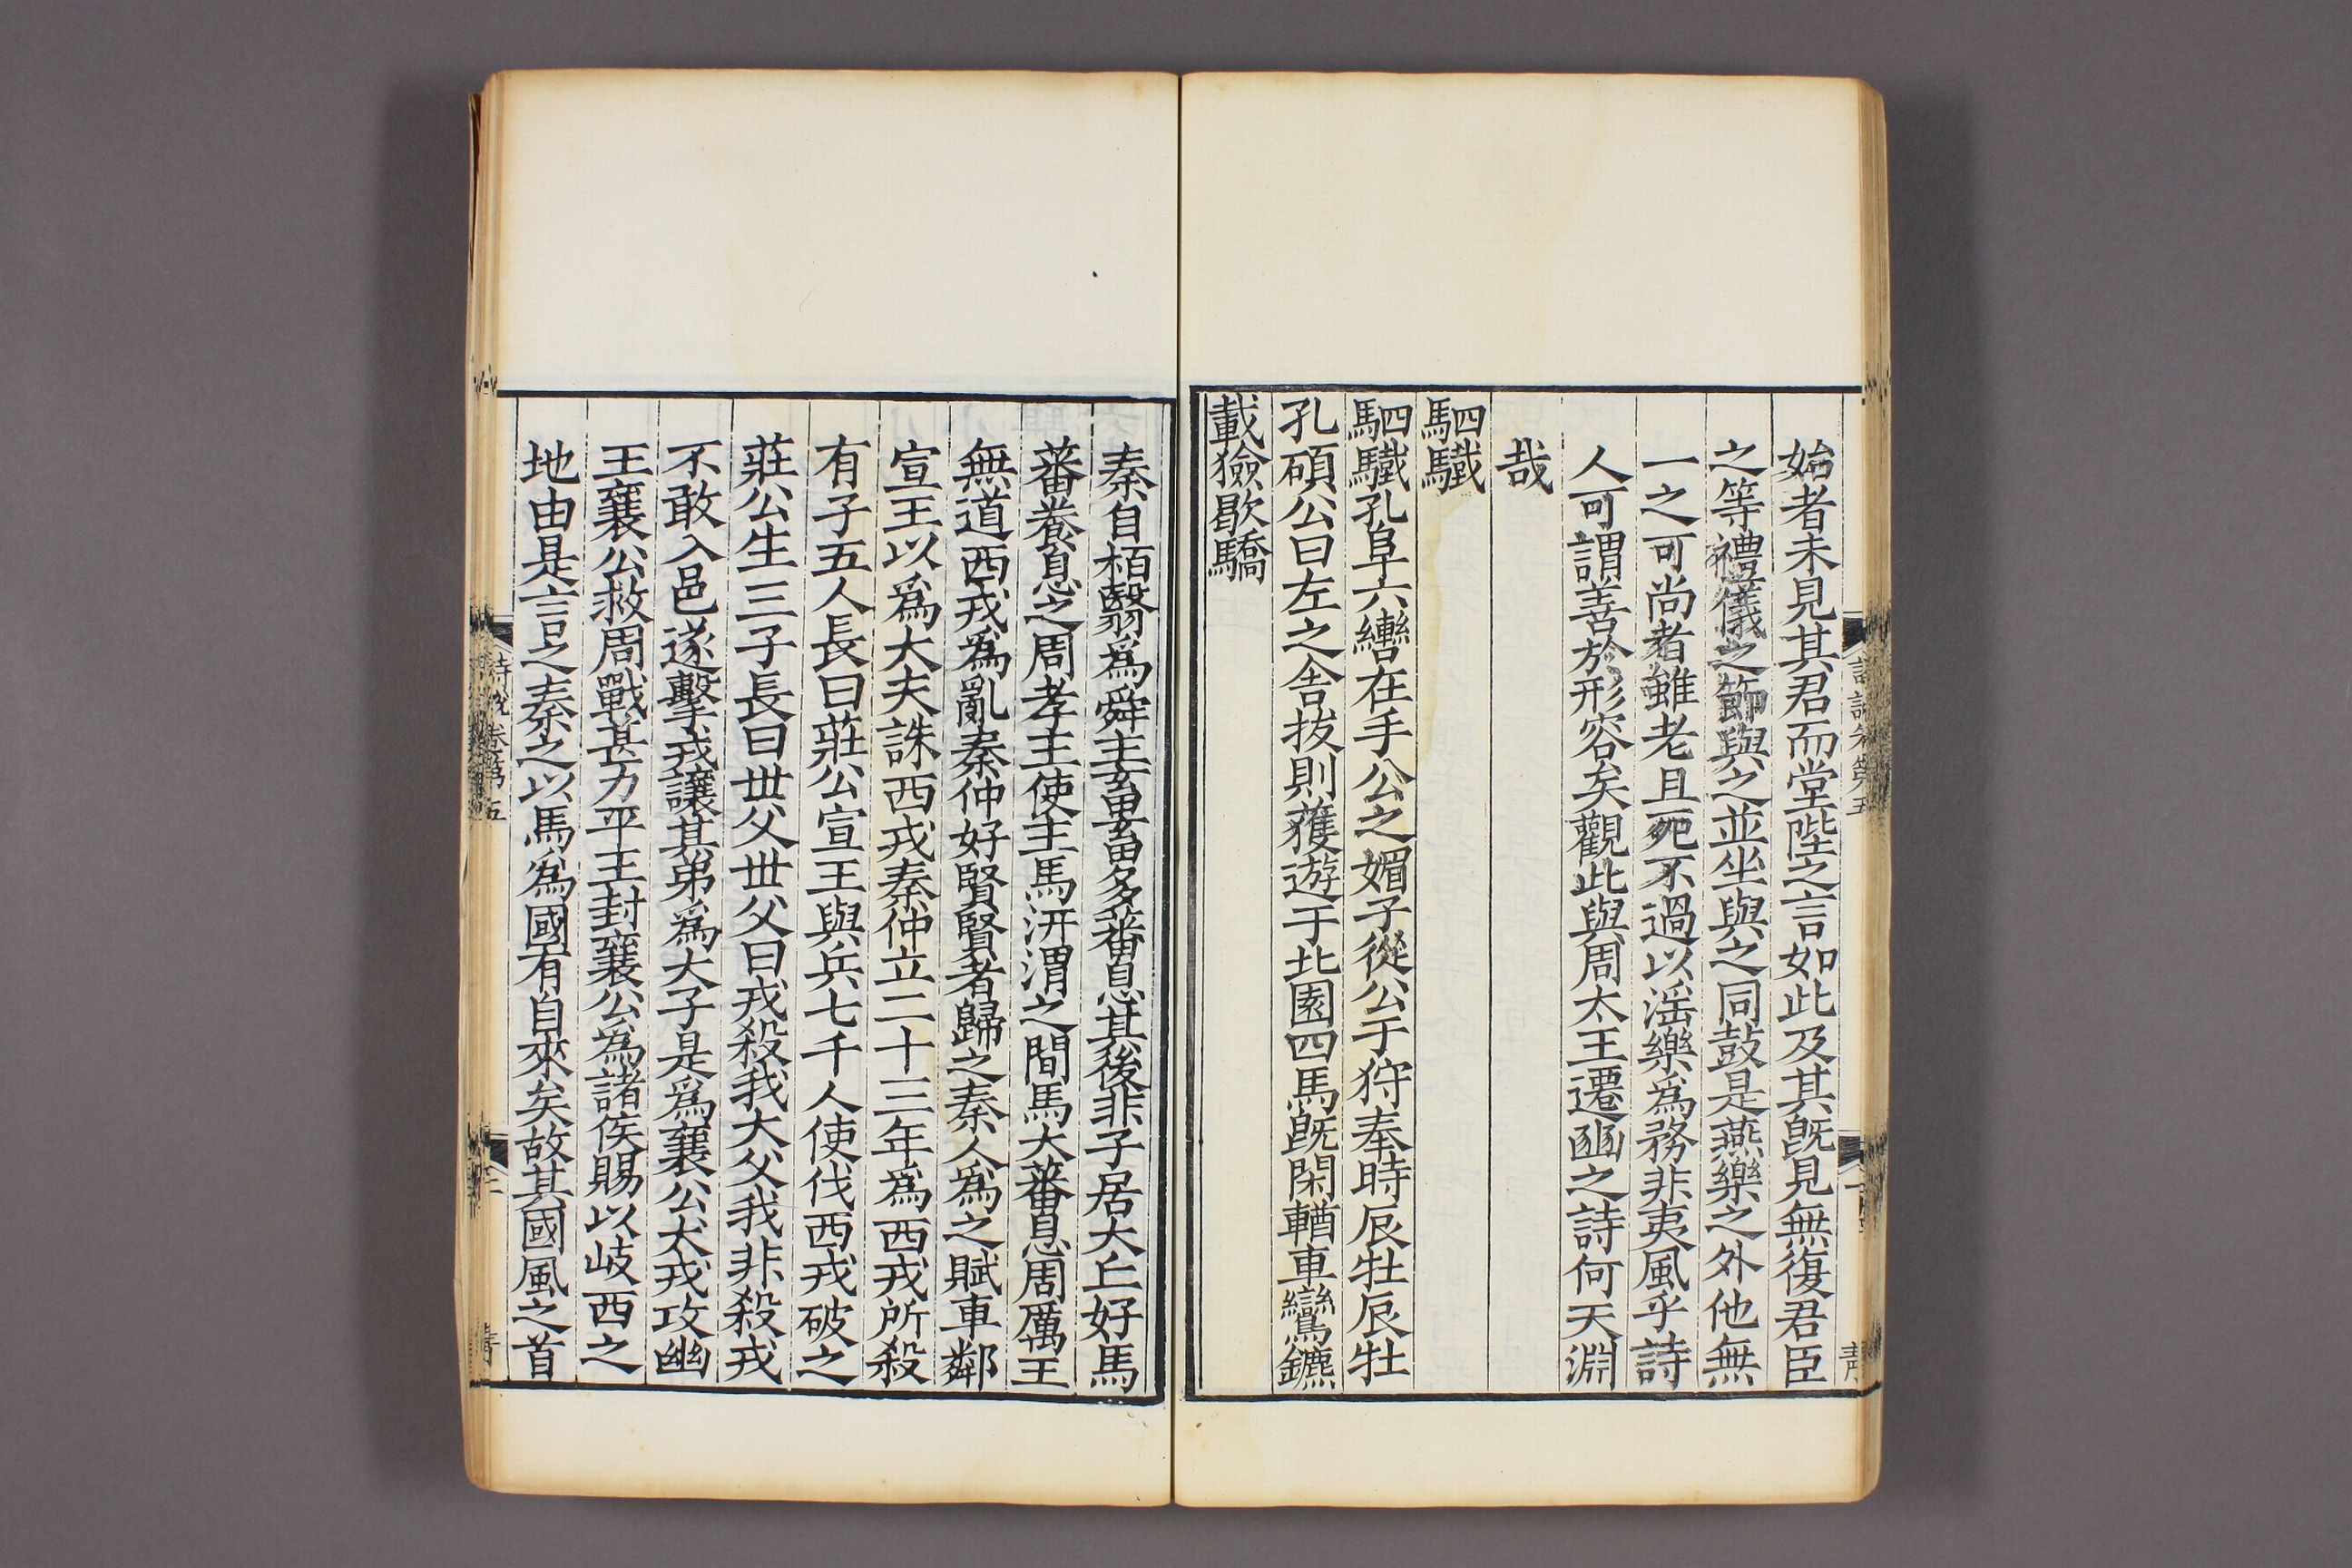 始者未見其君而堂陛之言如此及其旣見無復君臣
之等禮儀之節與之並坐與之同鼓是燕樂之外他無
一之可尚者雖老且死不過以滛樂爲務非夷風乎詩
人可謂善於形容矣觀此與周太王遷豳之詩何天淵
哉
駟驖
駟驖孔阜六轡在手公之媚子從公于狩奉時辰牡辰牡
孔碩公曰左之舍拔則獲遊于北園四馬旣閑輶車鸞鑣
載獫歇驕
秦自栢翳爲舜主畜畜多蕃息其後非子居犬丘好馬
蕃養息之周孝王使主馬汧渭之間馬大蕃息周厲王
無道西戎爲亂秦仲好賢賢者歸之秦人爲之賦車鄰
宣王以爲大夫誅西戎秦仲立二十三年爲西戎所殺
有子五人長曰莊公宣王與兵七千人使伐西戎破之
莊公生三子長曰世父世父曰戎殺我大父我非殺戎
不敢入邑遂擊戎讓其弟爲太子是爲襄公犬戎攻幽
王襄公救周戰甚力平王封襄公爲諸侯賜以岐西之
地由是言之秦之以馬爲國有自來矣故其國風之首
詩說卷第五